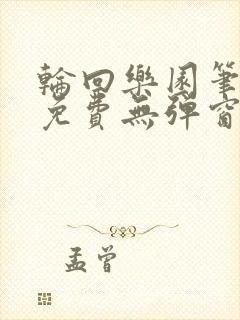 輪回樂園筆
免費無彈窗
孟曾